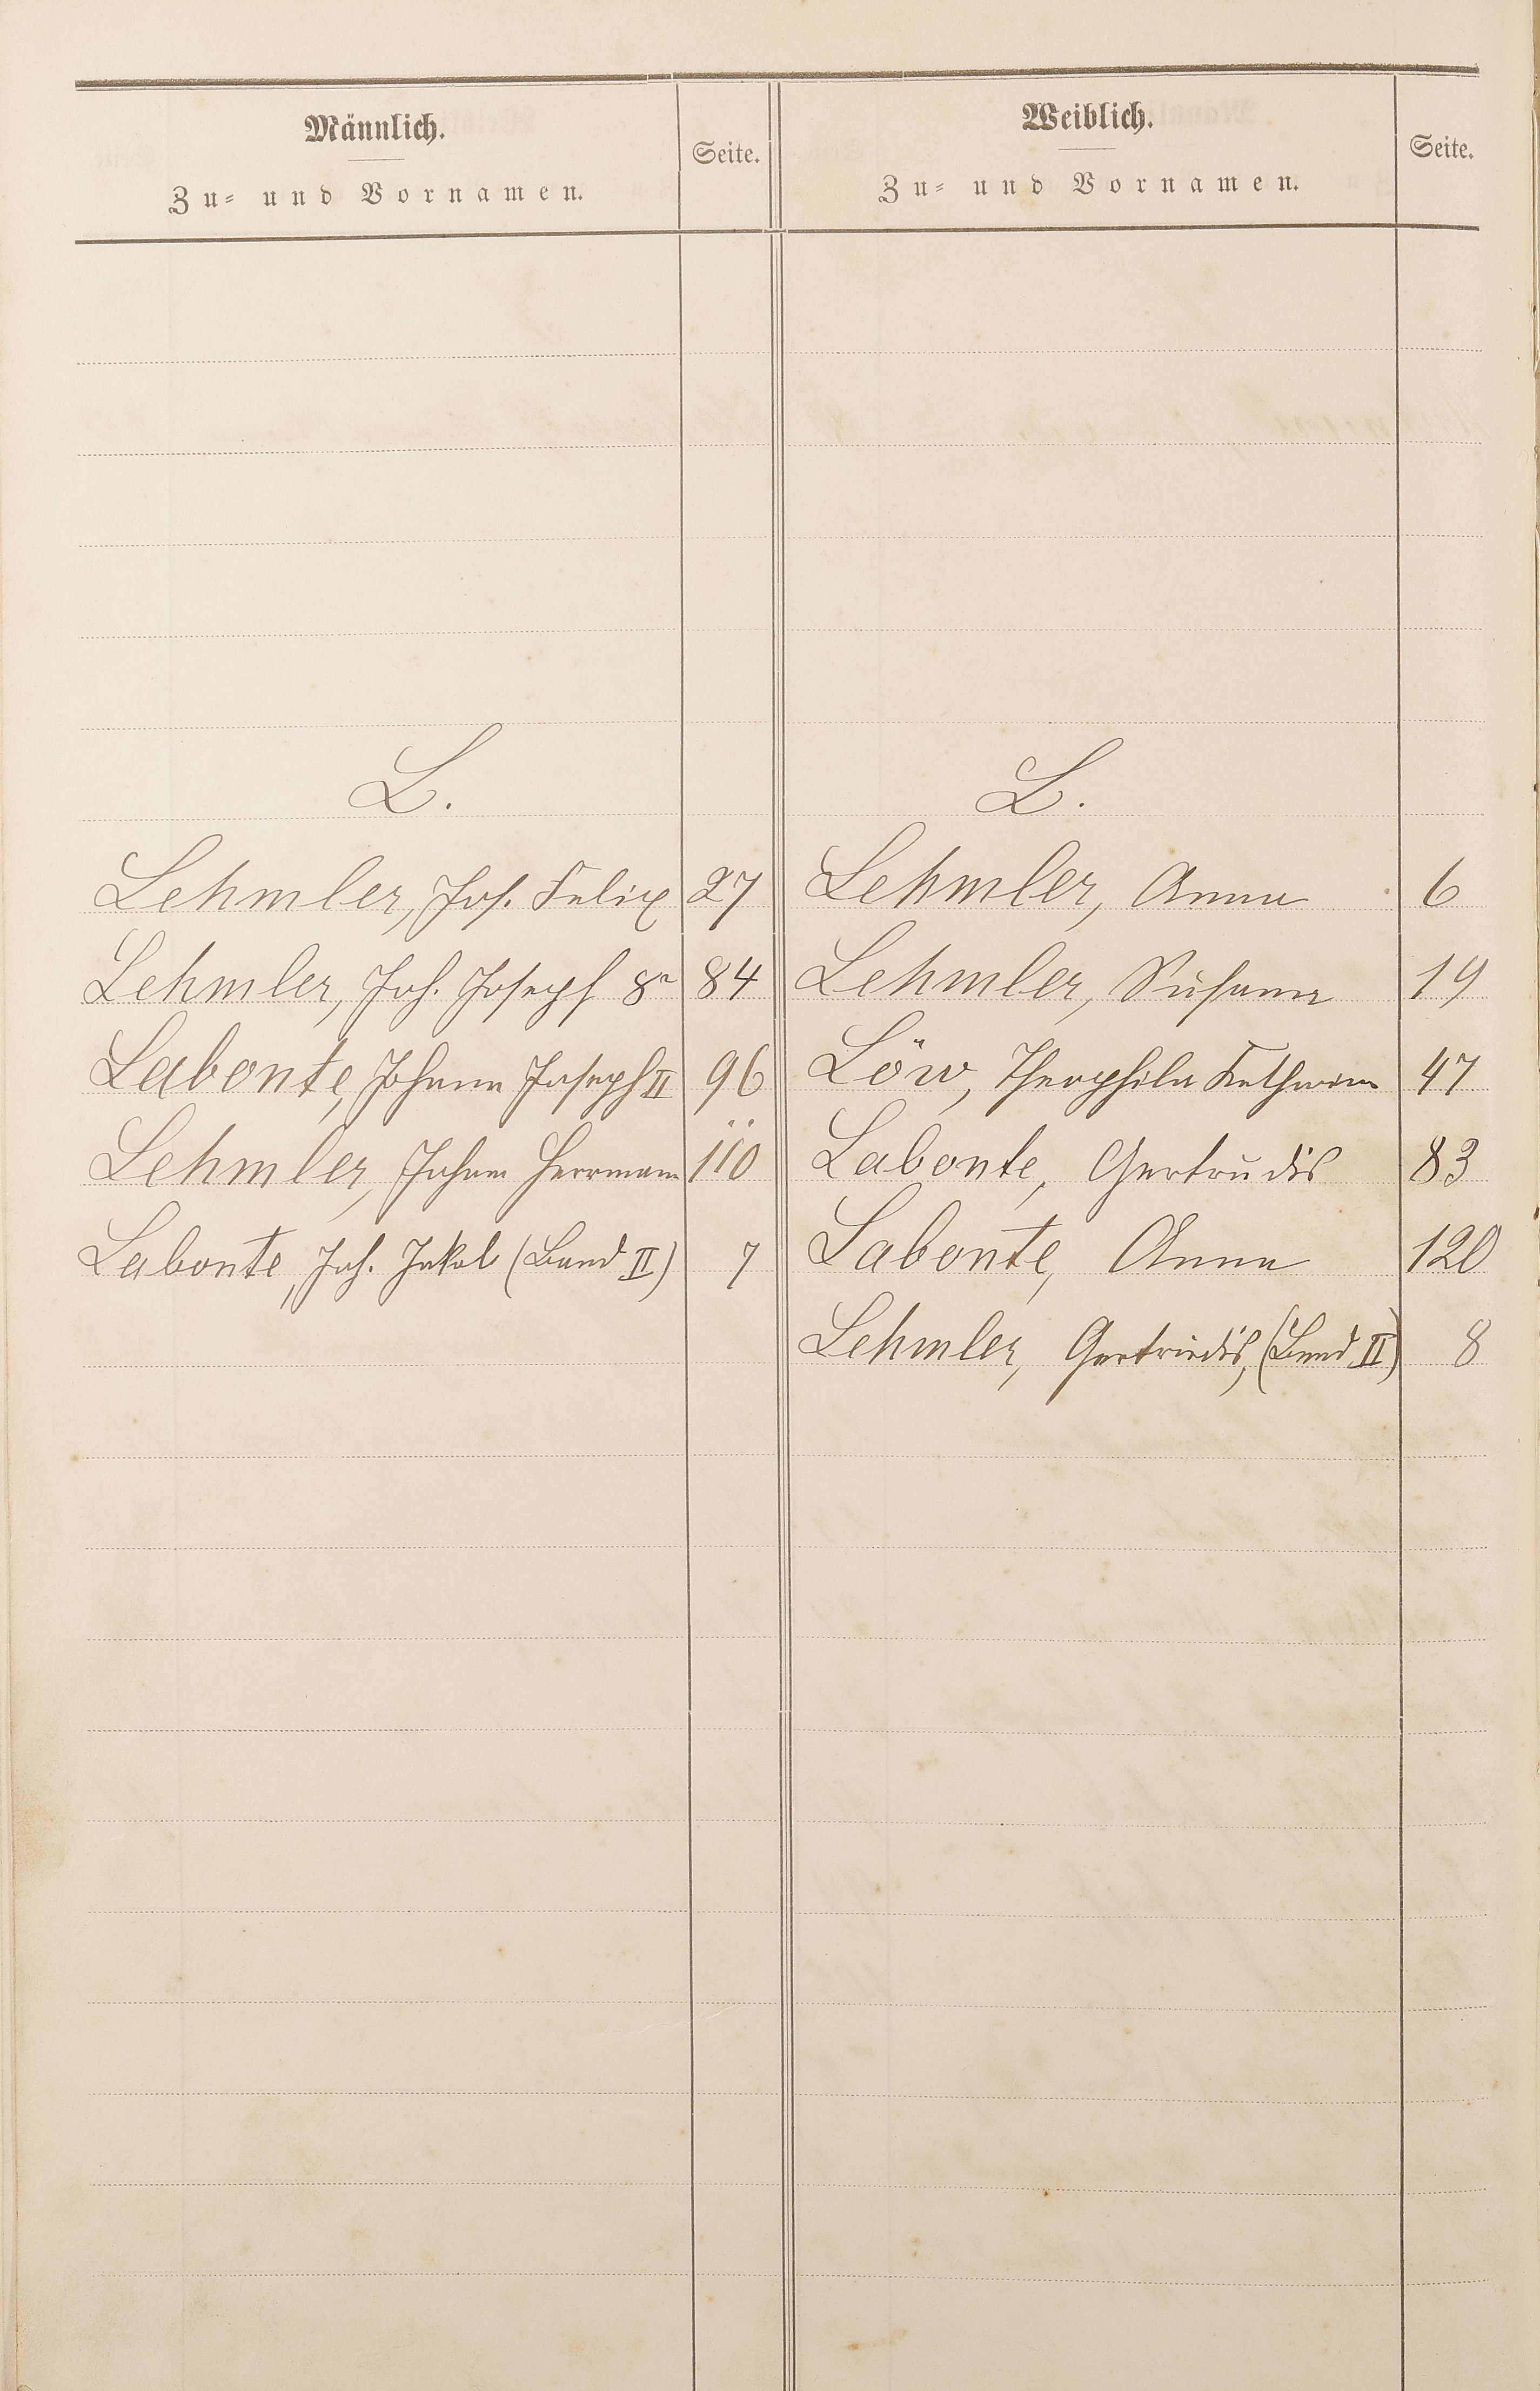 Männlich.
Zu- und Vornamen.
Seite.
Weiblich.
Zu- und Vornamen.
Seite.
L.
Lehmler, Jos. Felix 27
Lehmler, Joh. Joseph 84
Labonte, Johann Joseph II 96
Lehmler, Johann Herrmann 110
Labonte, Joh. Jakob (Band II) 7
L.
Lehmler, Anna 6
Lehmler, Susanna 19
Löw, Theophila Katharina 47
Labonte, Gertrudis 83
Labonte, Anna 120
Lehmler, Gertrudis, (Band II) 8